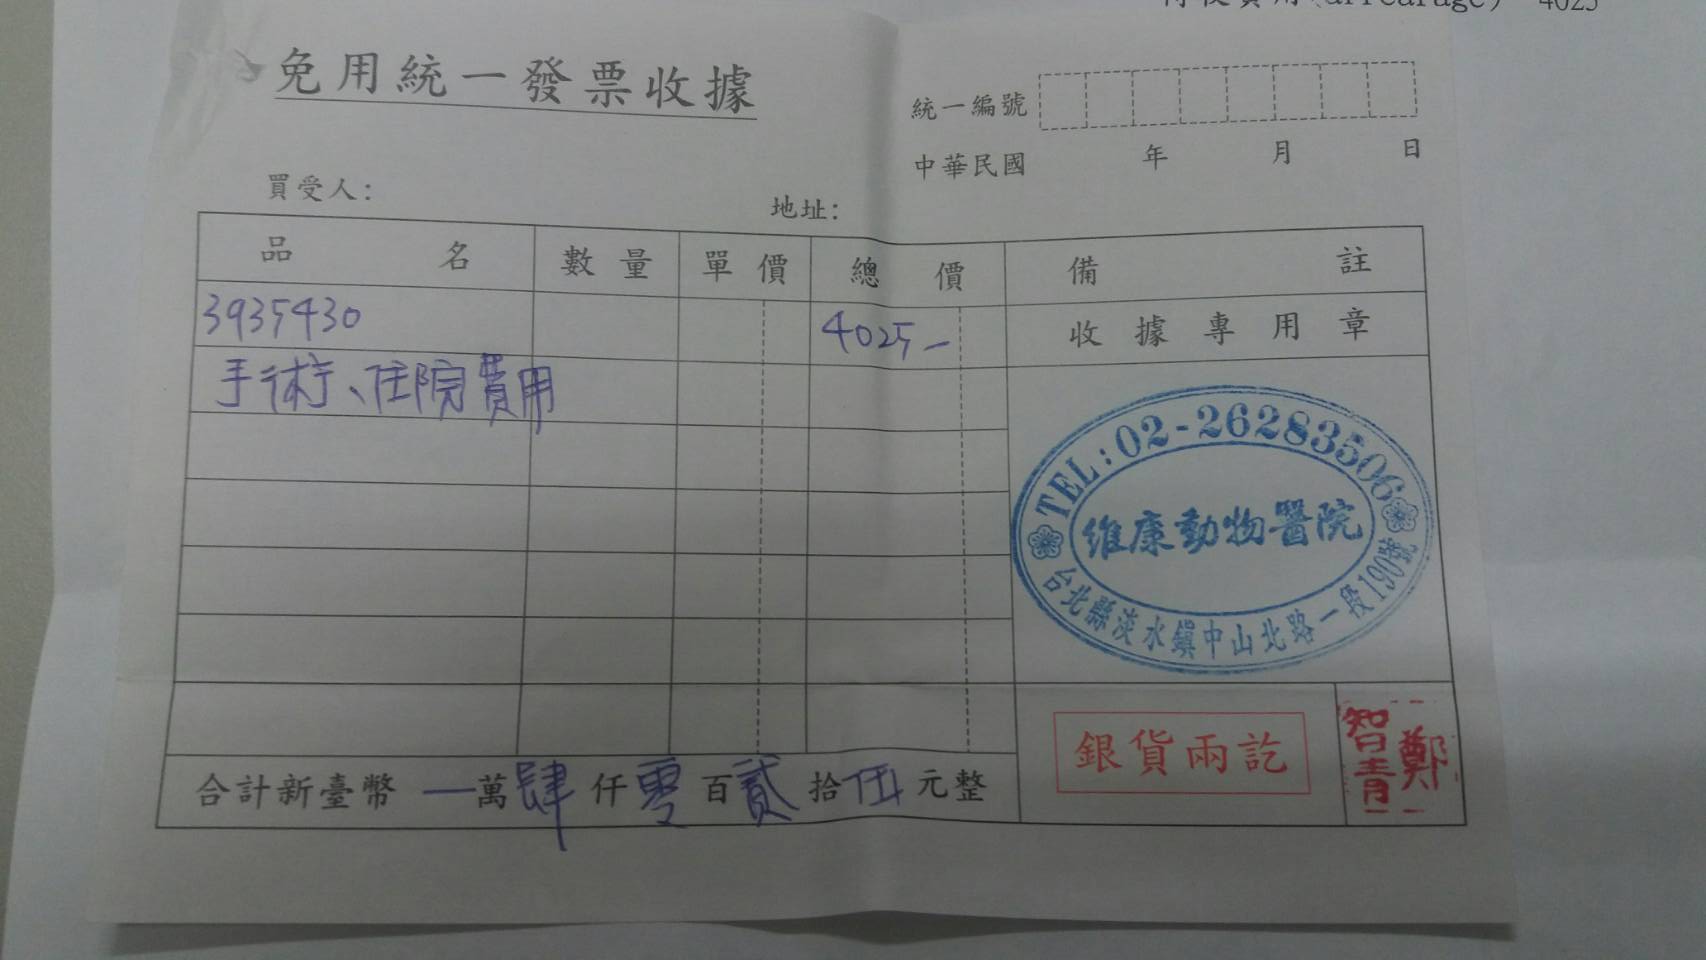 (arrearage) 4025
免用統一發票收據
統一編號
中華民國 年 月 日
買受人: 地址:
品名 數量 單價 總價 備註
3935430 4025- 收據專用章
手術、住院費用
TEL:02-26283506
維康動物醫院
台北縣淡水鎮中山北路一段190號
合計新臺幣一萬肆仟零百貳拾伍元整
銀貨兩訖
鄭智青